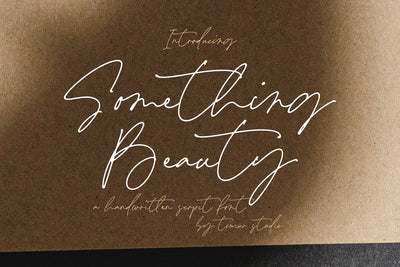 Introducing
Something
Beauty
a handwritten script font
by
studio